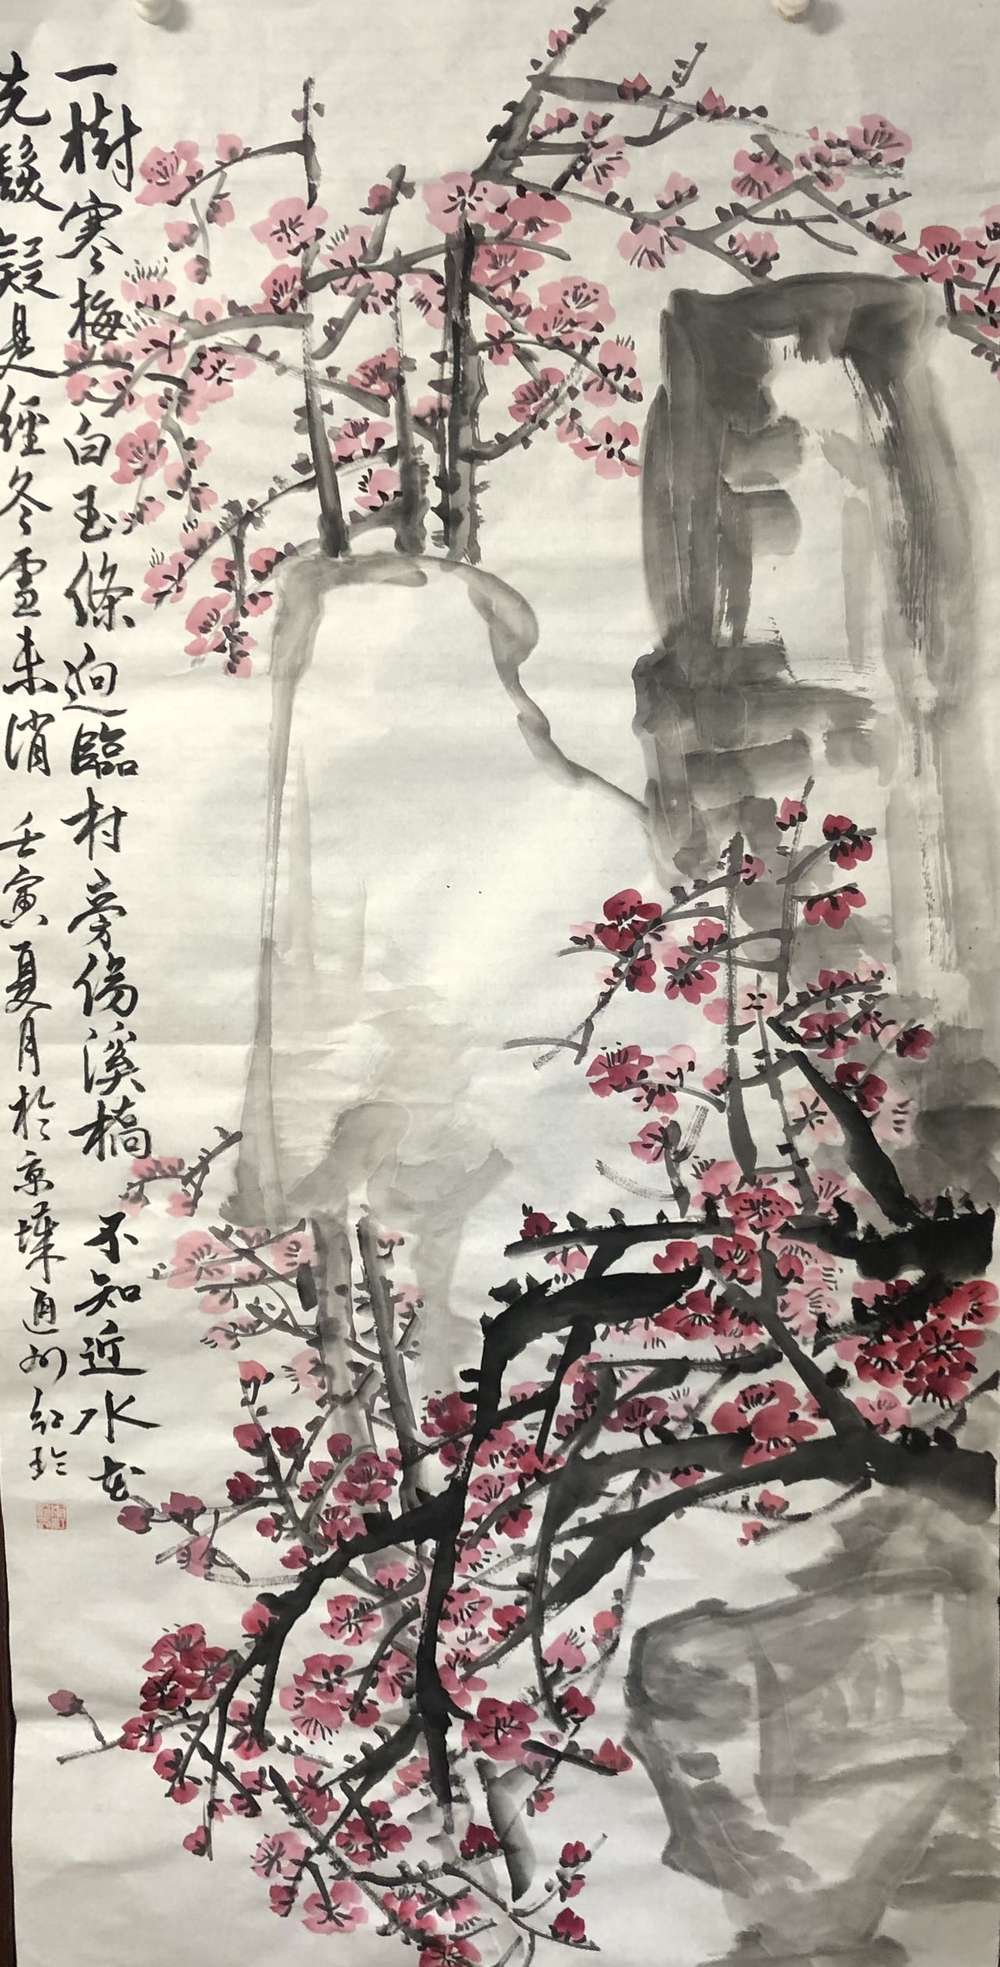 一樹寒梅白玉條迥臨村旁傍溪橋 不知近水花
先發疑是經冬雪未消 壬寅夏月於京通州紅玲